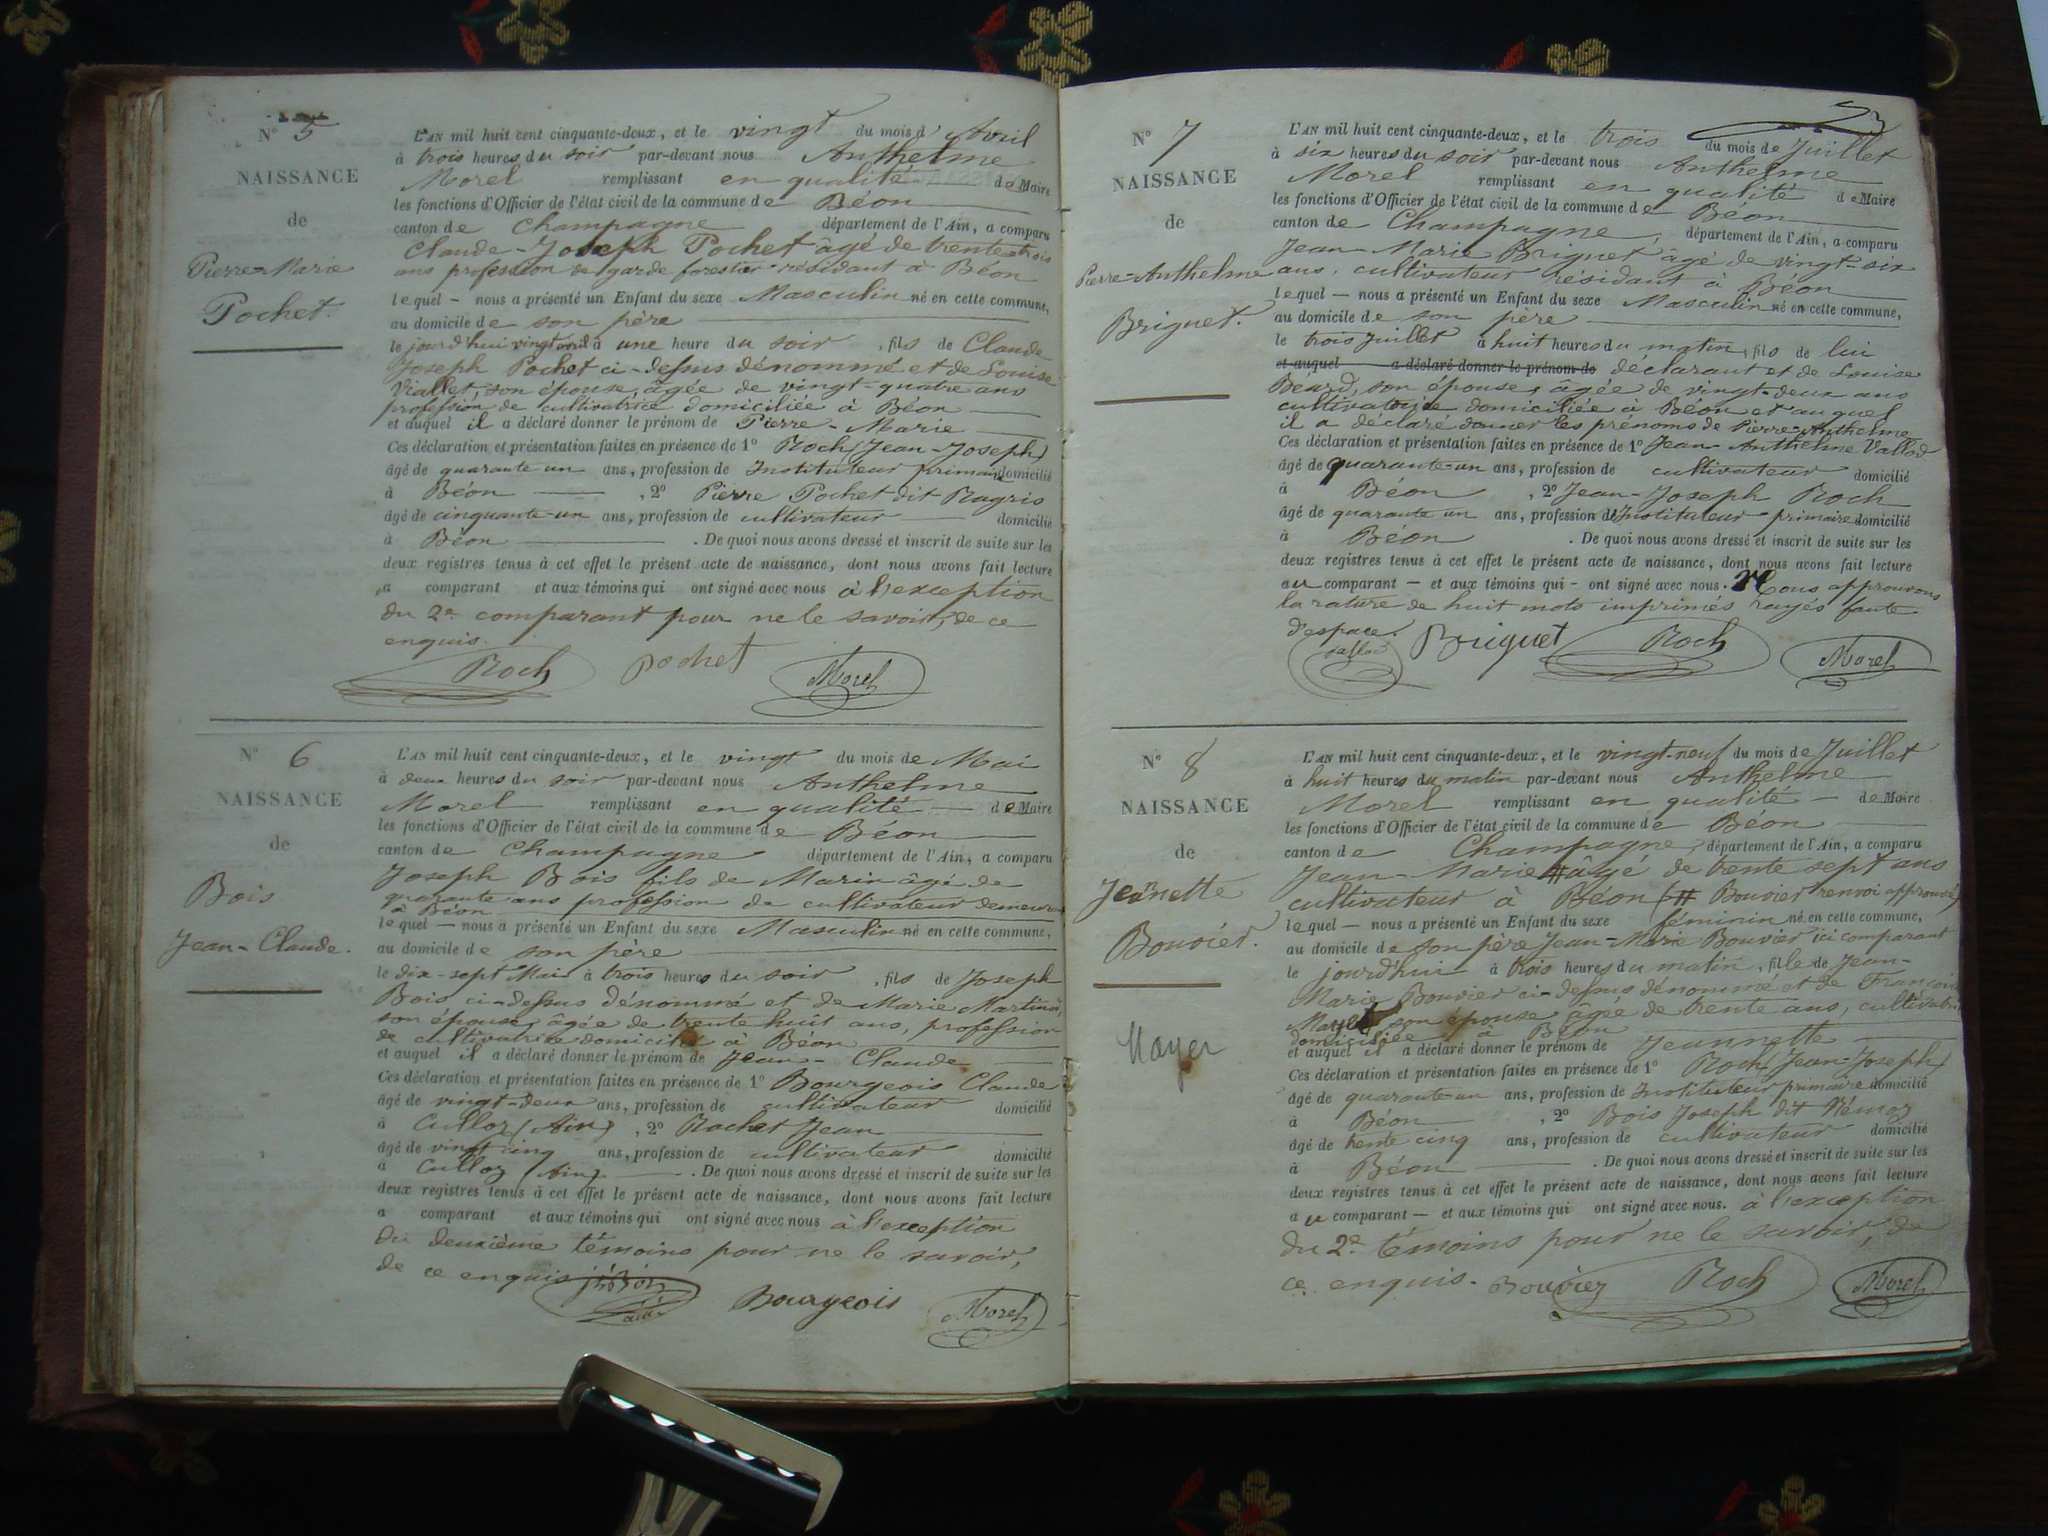 N° 5
NAISSANCE
de
Pierre-Marie
Pochet.
L'AN mil huit cent cinquante-deux, et le vingt du mois d'Avril
à trois heures du soir par-devant nous Anthelme
Morel remplissant en qualité de Maire
les fonctions d'Officier de l'état civil de la commune de Béon
canton de Champagne département de l'Ain, a comparu
Claude-Joseph Pochet âgé de trente trois
ans profession de garde forestier résidant à Béon
lequel — nous a présenté un Enfant du sexe Masculin né en cette commune,
au domicile de son père
le jourd'hui vingt avril à une heure du soir, fils de Claude-
Joseph Pochet ci-dessus dénommé et de Louise
Viallet, son épouse, âgée de vingt-quatre ans
profession de cultivatrice domiciliée à Béon
et auquel il a déclaré donner le prénom de Pierre-Marie
Ces déclaration et présentation faites en présence de 1° Roch (Jean-Joseph)
âgé de quarante un ans, profession de Instituteur primaire domicilié
à Béon, 2° Pierre Pochet dit Ragris
âgé de cinquante-un ans, profession de cultivateur domicilié
à Béon. De quoi nous avons dressé et inscrit de suite sur les
deux registres tenus à cet effet le présent acte de naissance, dont nous avons fait lecture
a comparant et aux témoins qui ont signé avec nous à l'exception
du 2e comparant pour ne le savoir, de ce
enquis.
Roch Pochet Morel
N° 6
NAISSANCE
de
Bois
Jean-Claude.
L'AN mil huit cent cinquante-deux, et le vingt du mois de Mai
à deux heures du soir par-devant nous Anthelme
Morel remplissant en qualité — de Maire
les fonctions d'Officier de l'état civil de la commune de Béon
canton de Champagne département de l'Ain, a comparu
Joseph Bois fils de Marin âgé de
quarante ans profession de cultivateur demeurant
à Béon
lequel — nous a présenté un Enfant du sexe Masculin né en cette commune,
au domicile de son père
le dix-sept Mai à trois heures du soir, fils de Joseph
Bois ci-dessus dénommé et de Marie
son épouse, âgée de trente huit ans, profession
de cultivatrice domiciliée à Béon
et auquel il a déclaré donner le prénom de Jean-Claude
Ces déclaration et présentation faites en présence de 1° Bourgeois Claude
âgé de vingt-deux ans, profession de cultivateur domicilié
à Culloz (Ain), 2° Rochet Jean
âgé de vingt cinq ans, profession de cultivateur domicilié
à Culloz (Ain). De quoi nous avons dressé et inscrit de suite sur les
deux registres tenus à cet effet le présent acte de naissance, dont nous avons fait lecture
a comparant et aux témoins qui ont signé avec nous à l'exception
du deuxième témoins pour ne le savoir,
de ce enquis
Bourgeois Morel
N° 7
NAISSANCE
de
Pierre-Anthelme
Briguet.
L'AN mil huit cent cinquante-deux, et le trois du mois de Juillet
à six heures du soir par-devant nous Anthelme
Morel remplissant en qualité de Maire
les fonctions d'Officier de l'état civil de la commune de Béon
canton de Champagne, département de l'Ain, a comparu
Jean-Marie Briguet âgé de vingt-six
ans, cultivateur résidant à Béon
lequel — nous a présenté un Enfant du sexe Masculin né en cette commune,
au domicile de son père
le trois Juillet à huit heures du matin, fils de lui
et auquel a déclaré donner le prénom de déclarant et de Louise
Béard, son épouse, âgée de vingt-deux ans
cultivatrice, domiciliée à Béon et auquel
il a déclaré donner les prénoms de Pierre-Anthelme
Ces déclaration et présentation faites en présence de 1° Jean-Anthelme Vallod
âgé de quarante-un ans, profession de cultivateur domicilié
à Béon, 2° Jean-Joseph Roch
âgé de quarante un ans, profession d'Instituteur primaire domicilié
à Béon. De quoi nous avons dressé et inscrit de suite sur les
deux registres tenus à cet effet le présent acte de naissance, dont nous avons fait lecture
au comparant — et aux témoins qui - ont signé avec nous. Nous approuvons
la rature de huit mots imprimés rayés faute
d'espace.
Vallod Briguet Roch Morel
N° 8
NAISSANCE
de
Jeannette
Bouvier.
Mayer
L'AN mil huit cent cinquante-deux, et le vingt-neuf du mois de Juillet
à huit heures du matin par-devant nous Anthelme
Morel remplissant en qualité — de Maire
les fonctions d'Officier de l'état civil de la commune de Béon
canton de Champagne, département de l'Ain, a comparu
Jean-Marie # âgé de trente sept ans
cultivateur à Béon (# Bouvier renvoi approuvé)
lequel — nous a présenté un Enfant du sexe féminin né en cette commune,
au domicile de son père Jean-Marie Bouvier ici comparant
le jourd'hui à trois heures du matin, fille de Jean-
Marie Bouvier ci-dessus dénommé et de
son épouse âgée de trente ans, cultivatrice
domiciliée à Béon
et auquel il a déclaré donner le prénom de Jeannette
Ces déclaration et présentation faites en présence de 1° Roch (Jean-Joseph)
âgé de quarante-un ans, profession de Instituteur primaire domicilié
à Béon, 2° Bois Joseph dit Rémoz
âgé de trente cinq ans, profession de cultivateur domicilié
à Béon. De quoi nous avons dressé et inscrit de suite sur les
deux registres tenus à cet effet le présent acte de naissance, dont nous avons fait lecture
au comparant — et aux témoins qui ont signé avec nous. à l'exception
du 2e témoins pour ne le savoir, de
ce enquis. Bouvier Roch Morel